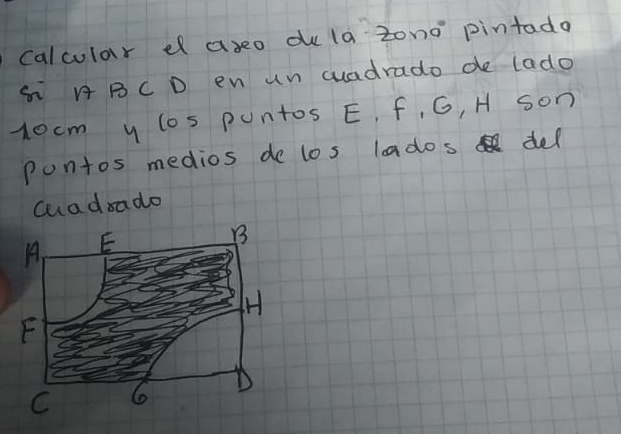 Calcular el areo de la zono pintado
si A B C D en un cuadrado de lado
10cm y los puntos E, f, G, H son
puntos medios de los lados del
cuadrado
A E B
F H
C G D